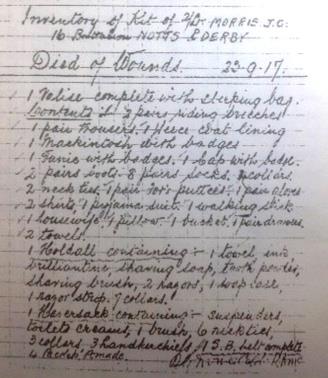 Inventory of Kit of 2/Lt MORRIS J.C.
16 Battalion NOTTS & DERBY
Died of Wounds. 22-9-17.
1 Valise complete with sleeping bag.
Contents 2 pairs riding breeches
1 pair trousers. 1 fleece coat lining
1 Mackintosh with badges
1 Tunic with badges. 1 Cap with badge.
2 pairs boots. 8 pairs socks. collars.
2 neck ties. 1 pair puttees. 1 pair gloves
2 shirts. 1 pyjama suit. 1 walking stick
1 housewife. 1 pillow. 1 bucket. 1 pair drawers.
2 towels.
1 Holdall containing :- 1 towel,
brilliantine, shaving soap, tooth powder,
shaving brush, 2 razors, 1 soap case,
1 razor strop. 7 collars.
1 Haversack containing :- suspenders,
toilets creams, 1 brush, 6 neckties,
3 collars, 3 handkerchiefs, 1 S.B. belt complete